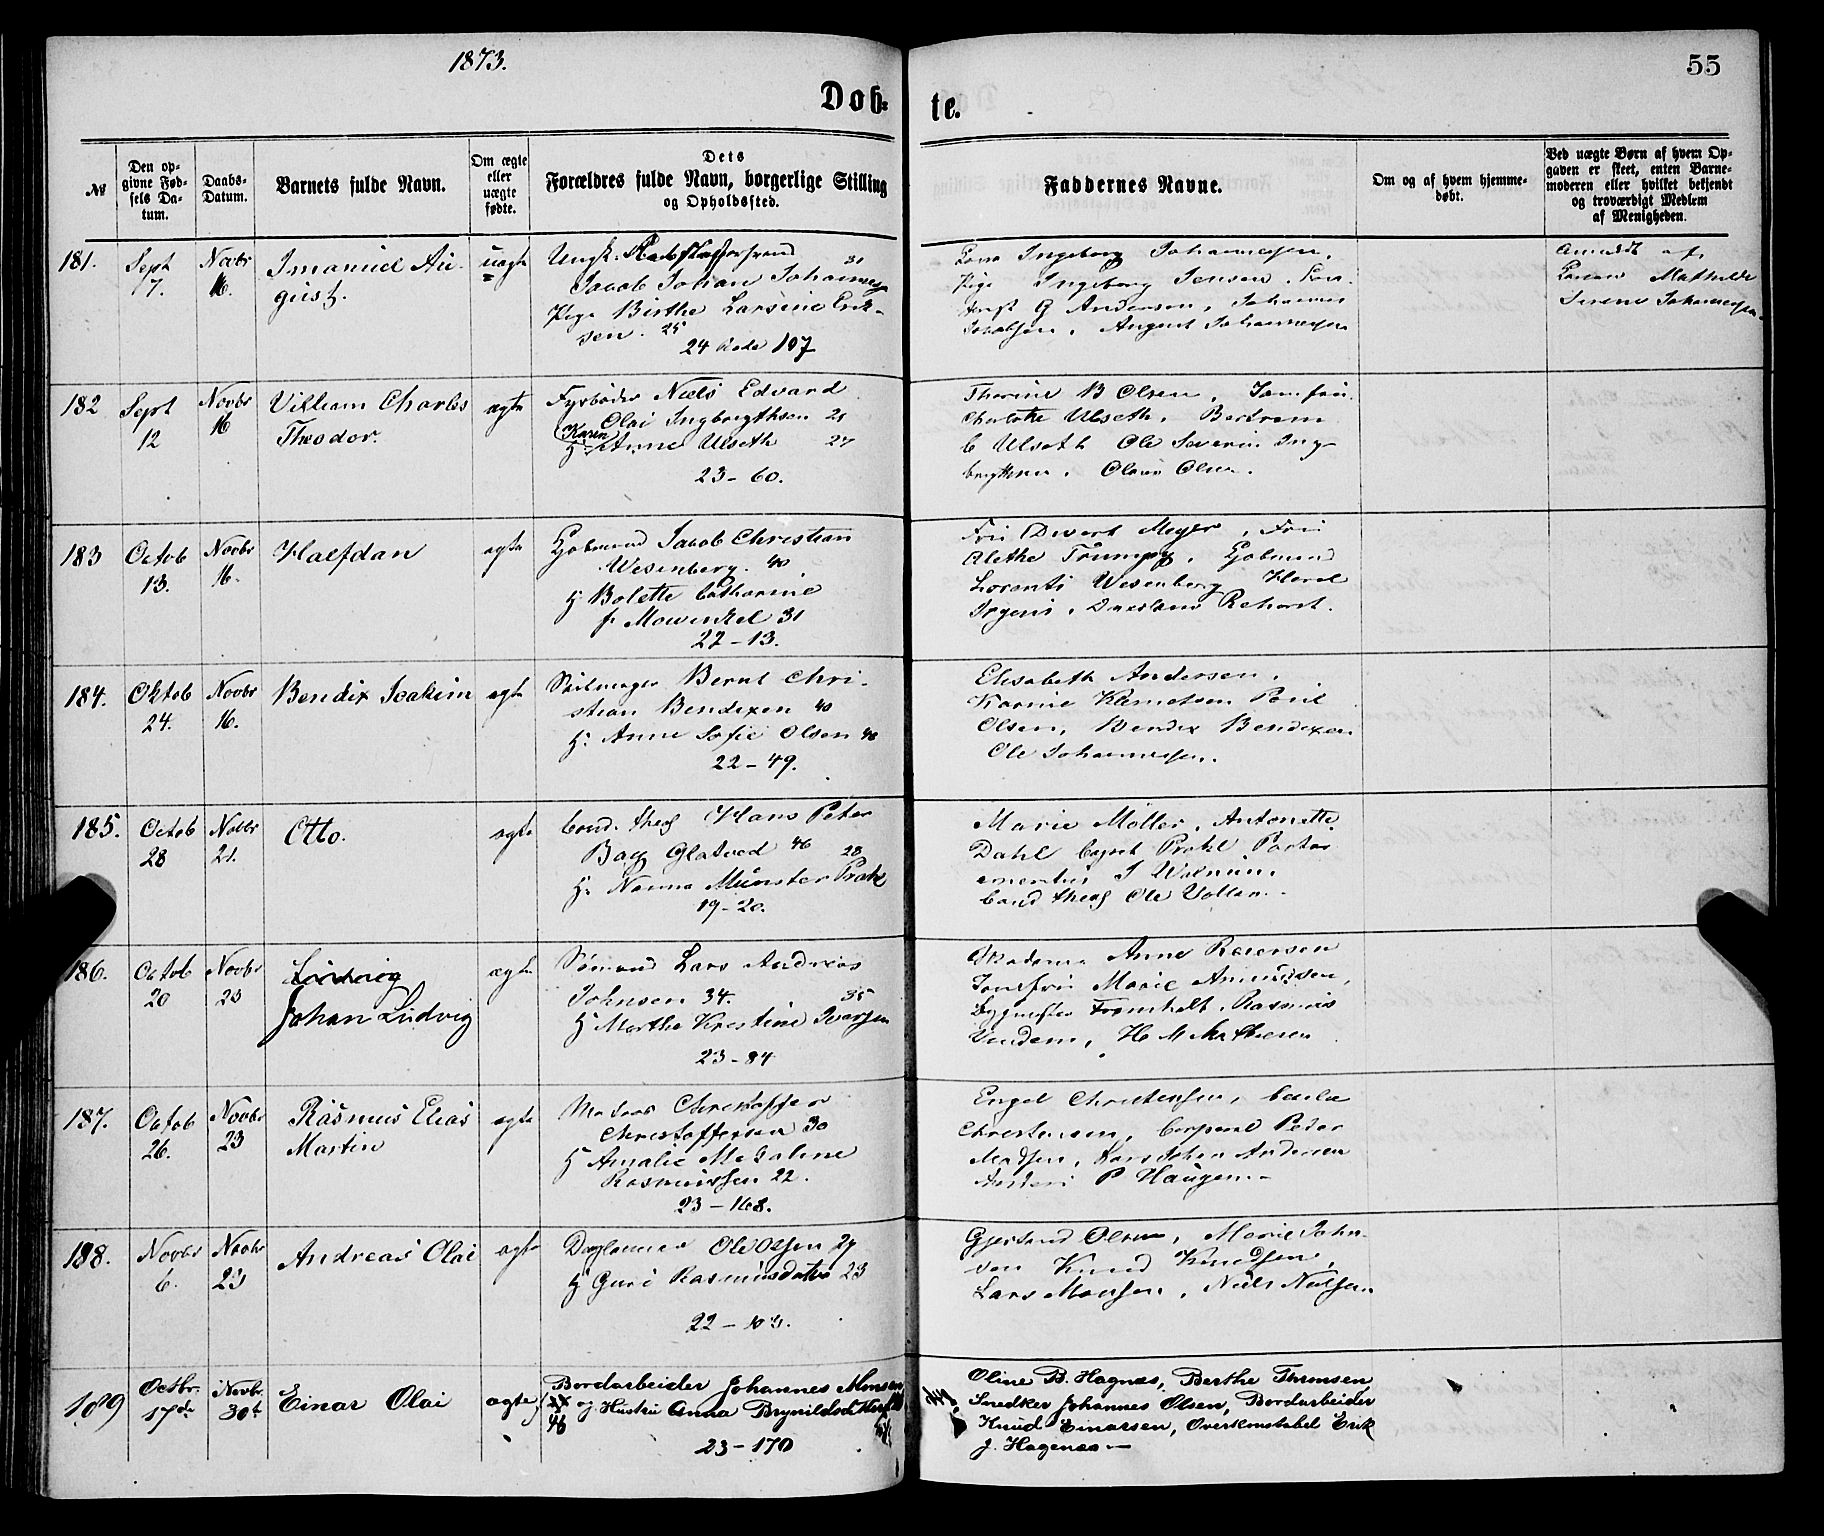 1873.
55
Døb-
te.
№
Den op-
givne Fød-
sels Da-
tum.
Daabs-
Datum.
Barnets fulde Navn.
Om ægte
eller
uægte
fødte.
Dets
Forældres fulde Navn, borgerlige Stilling
og Opholdssted.
Faddernes Navne.
Om og af hvem hjemme-
døbt.
Ved uægte Børn af hvem Op-
gaven er skeet, enten Barne-
moderen eller hvilket bekjendt
og troværdigt Medlem
af Menigheden.
181.
Sept
7.
Novbr
16.
Imanuel Au-
gust.
uægte
Ungk.
31
Jacob Johan Johannes
Pige Birthe Larsine Erik-
sen. 25
24 Rode 107
Ingeborg Johannessen,
Pige Ingeborg Jensen
G Andersen, Johannes
Jakobsen, August Johannessen
Anmeldt af
Mathilde
Serene Johannessen
182
Sept
12
Novbr
16
Villiam Charles
Theodor.
ægte
Fyrbøder Niels Edvard
Olai Ingbregthsen 21
(Karen)
H. Anne Ulseth 27
23-60.
Thorine B Olsen, Jomfru
Charlotte Ulseth, Bertrem
C Ulseth Ole Severin Ing-
brigtsen, Olsen.
183
Octob
13.
Novbr
16.
Halfdan
ægte
Kjøbmand Jacob Christian
Wesenberg. 40
H Bolette Catharine
f. Mowinkel 31
22-13.
Fru Divert Meyer, Fru
Alethe Trumpy, Kjøbmænd
Lorents Wesenberg
Rehorst.
184.
Oktob
24.
Novbr
16.
Bendix Joakim
ægte
Seilmager Bernt Chri-
stian Bendixen 40
H. Anne Sofie Olsen 40
22-49.
Elisabeth Andersen,
Karine
Olsen, Bendix Bendixen
Ole Johannessen.
185.
Octob
28
Novbr
21.
Otto.
ægte
Cand. theog Hans Peter
Bag Glatved 46
28
H. Nanna Münster Prahl
19-20.
Marie Møller, Antonette
Dahl Prahl Pastor
emeritus J
Cand theog Ole Vollan.
186.
Octob
20
Novbr
23
Ludvig
Johan Ludvig
ægte
Sømand Lars Andreas
Johnsen 34.
35
H Marthe Kristine Iversen
23-84
Madame Anne Reiersen
Jomfru Marie
Rasmus
H M Mathiesen
187.
Octob
26.
Novbr
23
Rasmus Elias
Martin
ægte
Matros Christoffer
Christoffersen 30
H Amalie Malene
Rasmussen 22.
23-168.
Engel Christensen,
Christensen, Corporal Peder
Madsen, Lars Johan Andersen
P Haugen.
188.
Novbr
6.
Novbr
23
Andreas Olai
ægte
Daglønner Ole Olsen 29
H Guri Rasmusdatter 23
22-103.
Gjertrud Olsen, Marie John-
sen Knud Knudsen,
Lars Monsen, Niels Nielsen
189
Octbr.
17de
Novbr.
30te
Einar Olai
ægte
Bordarbeider Johannes Monsen
og Hustru Anna Brynildsdt
46
23-170
Oline B. Hagnæs, Berthe Thomsen
Snedker Johannes Olsen, Bordarbeider
Knud Einarsen, Overkonstabel Erik
J. Hagenæs